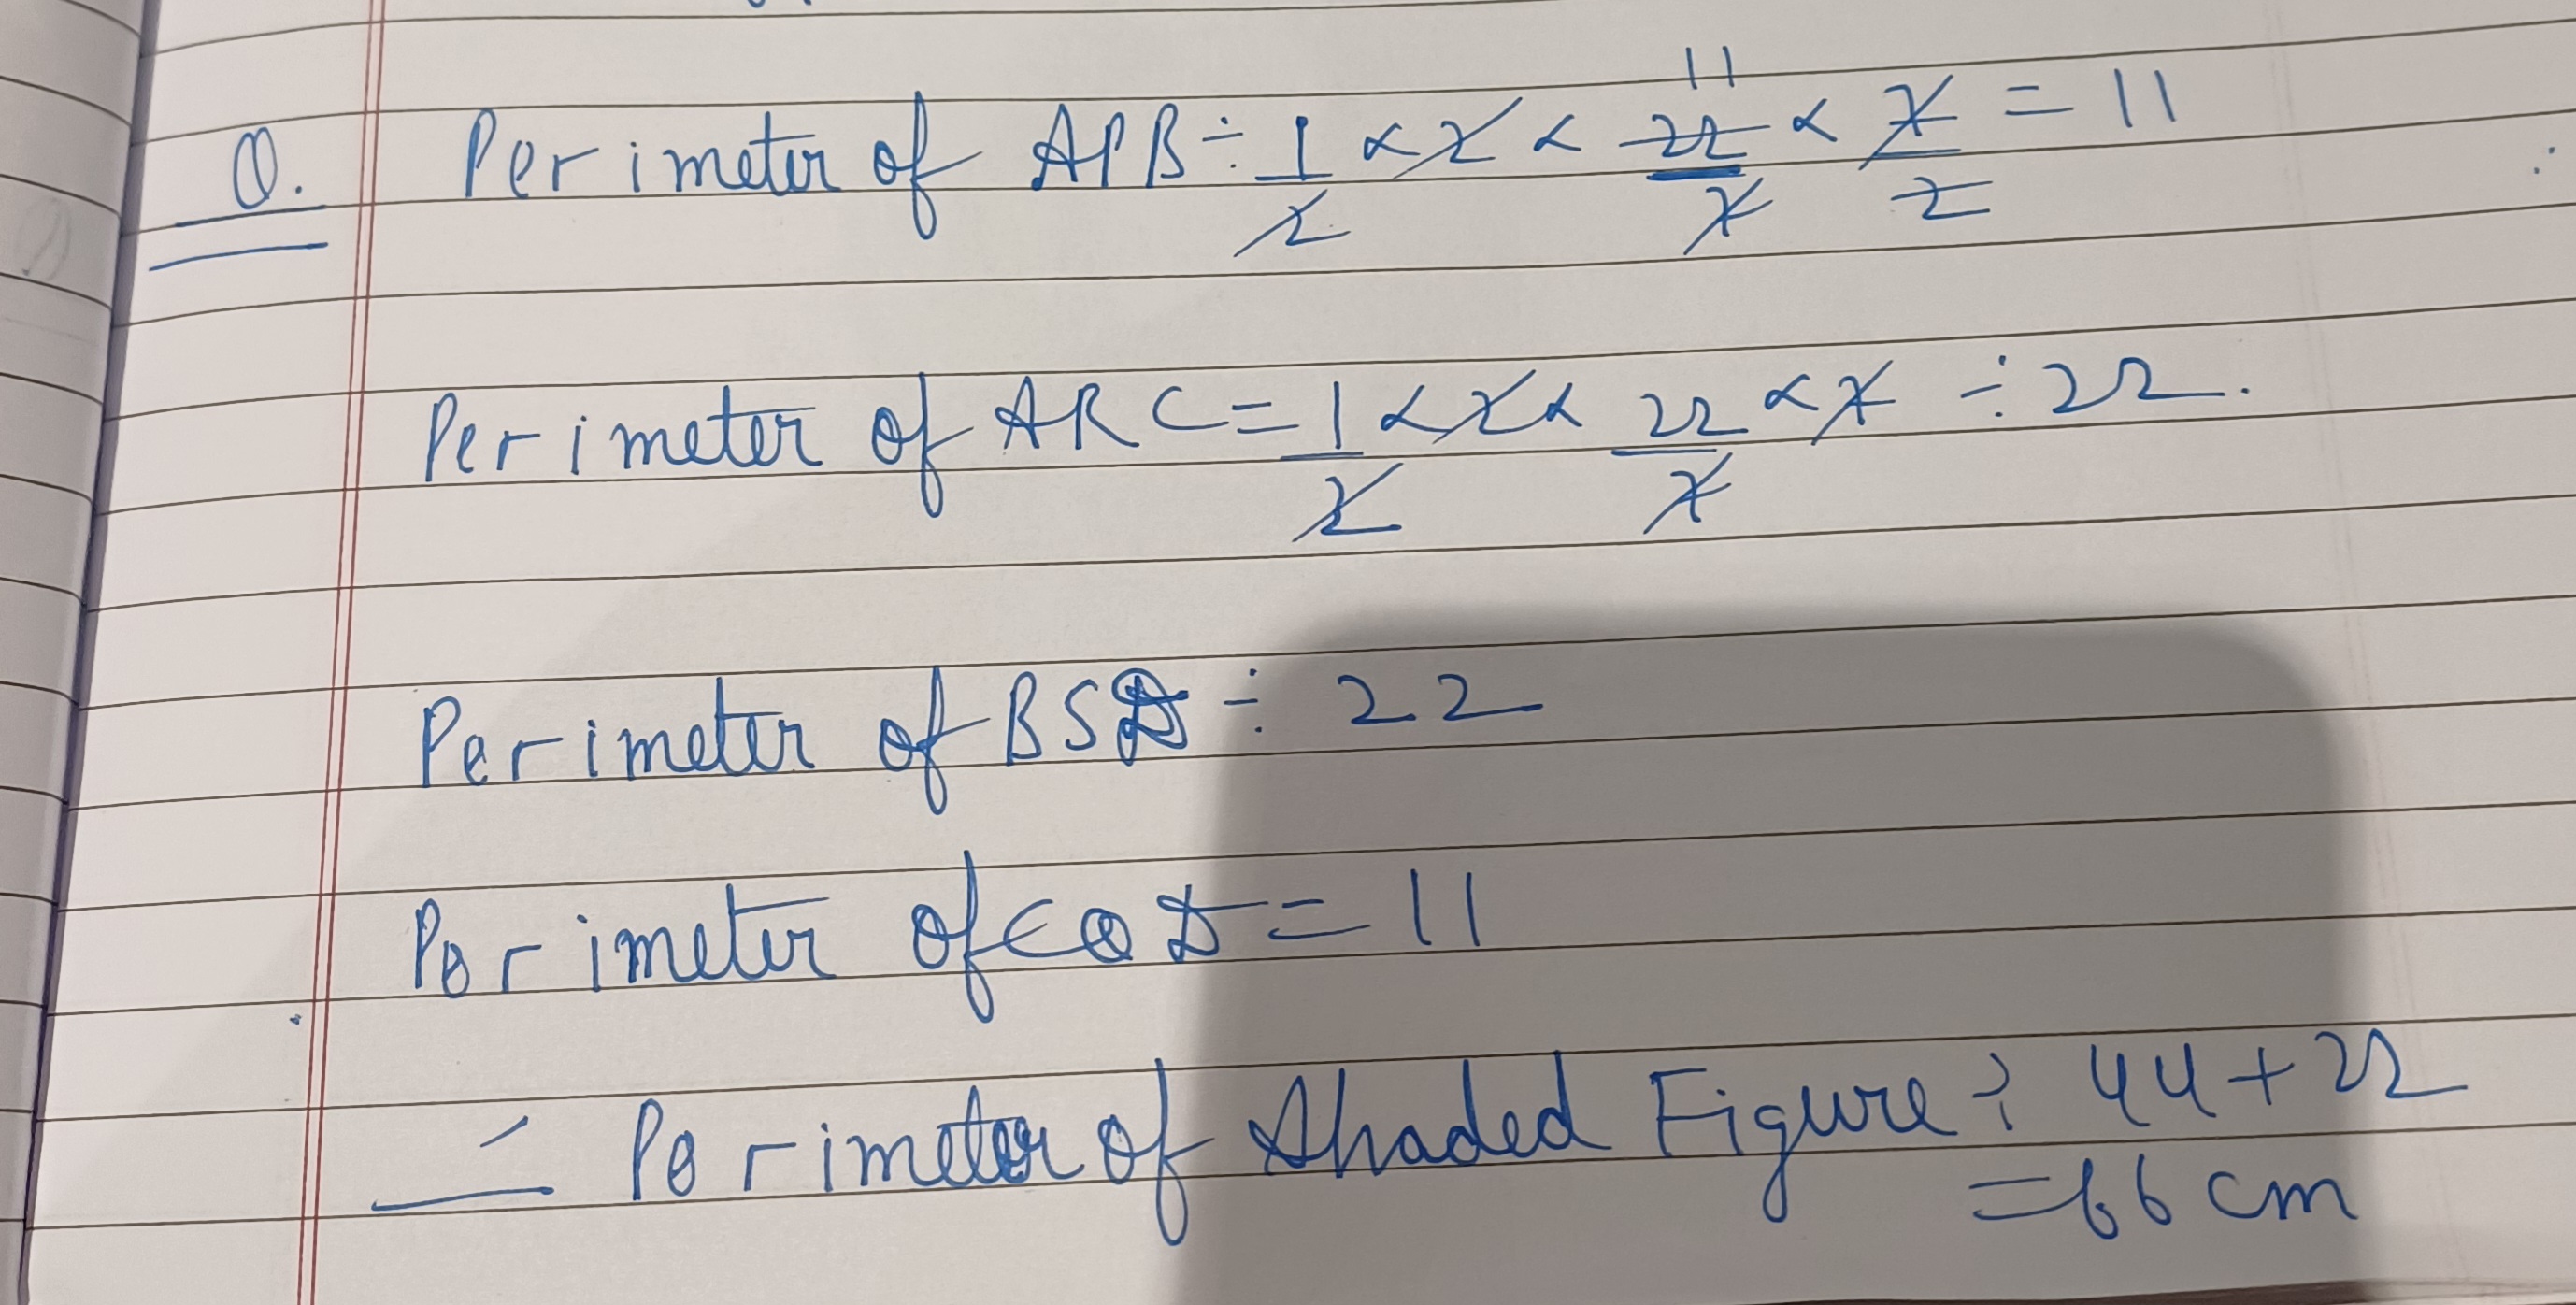 Q. Perimeter of APB ÷ 1/2 × 2 × 22/7 × 7/2 = 11
11
Perimeter of ARC = 1/2 × 2 × 22/7 × 7 ÷ 22.
Perimeter of BSD ÷ 22
Perimeter of CQD = 11
Perimeter of Shaded Figure ÷ 44 + 22
= 66 cm